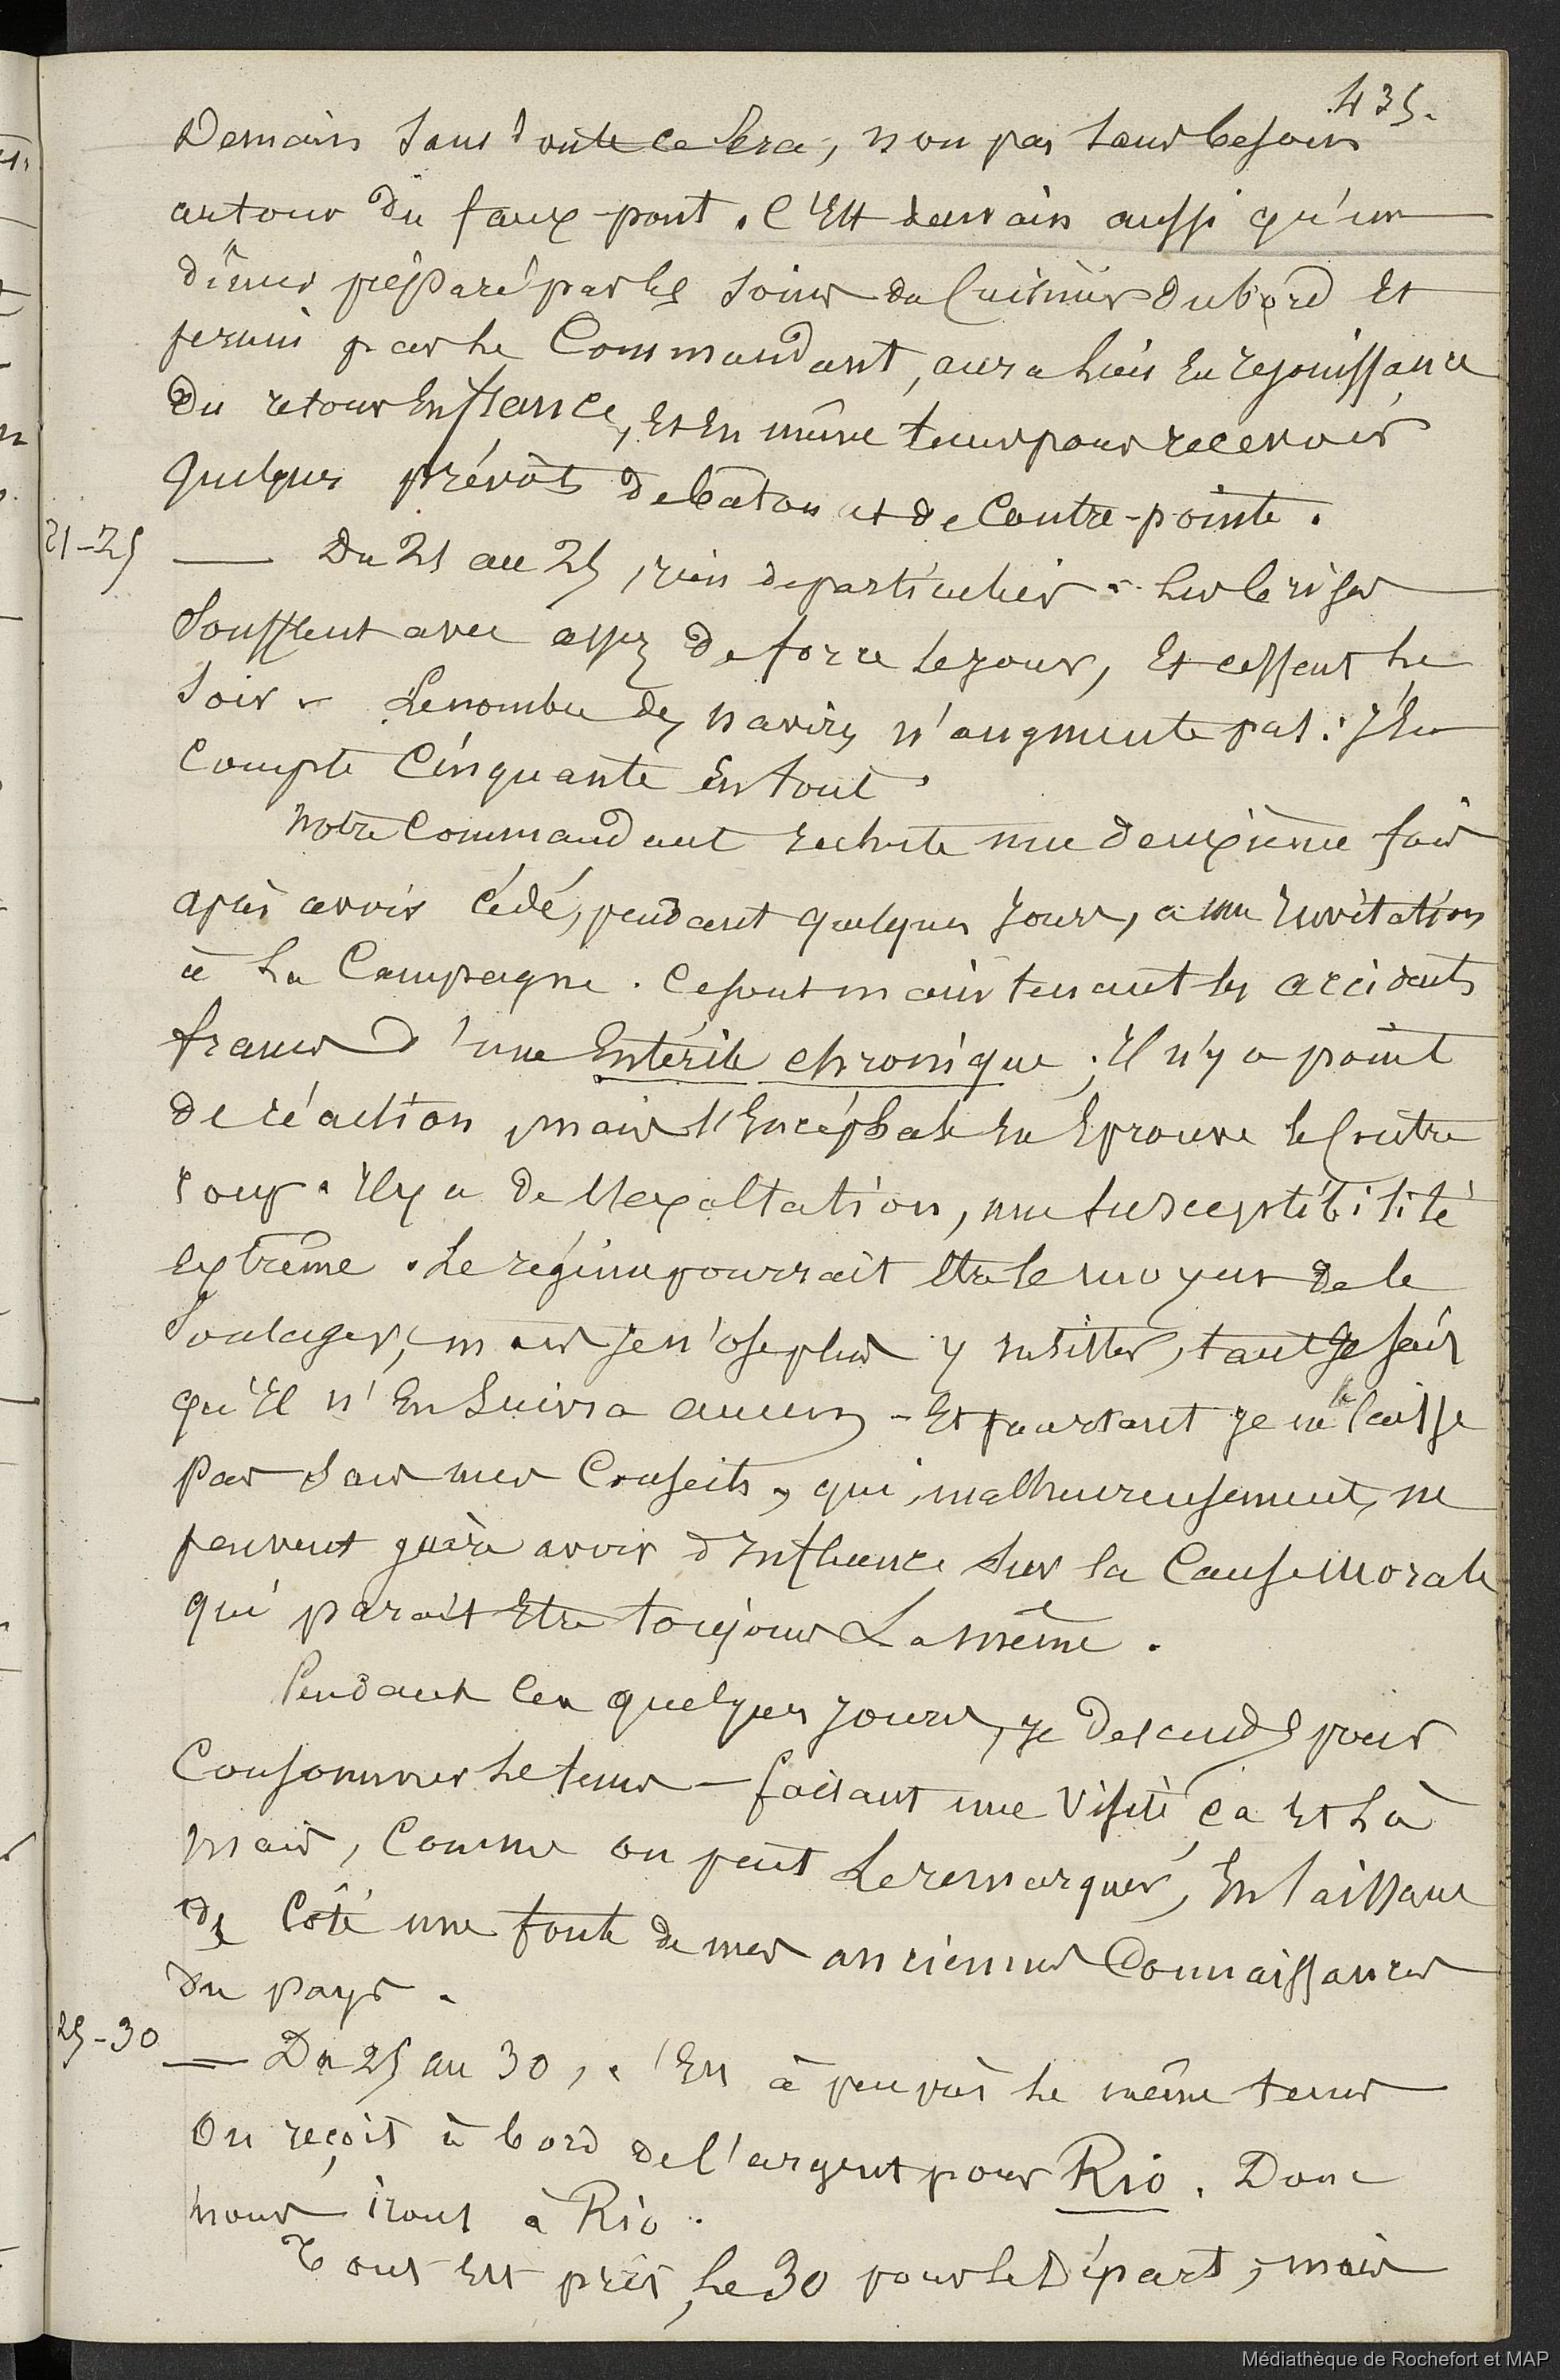 435.
Demain sans doute ce sera, non pas sans besoin
autour du faux-pont. C'est demain aussi qu'un
dîner préparé par les soins du Cuisinier du bord et
fourni par le Commandant, aura lieu en rejouissance
du retour En france, Et En même tems pour recevoir
quelques prévôts de bâton et de Contre-pointe.
21-25
— Du 21 au 25, rien de particulier. Les brises
soufflent avec assez de force le jour, Et cessent le
soir. Le nombre des navires n'augmente pas: J'En
compte Cinquante En tout.
Notre Commandant rechute une deuxième fois
après avoir cédé, pendant quelques jours, a une Invitation
à la Campagne. Ce sont maintenant les accidents
francs d'une Entérite chronique; Il n'y a point
de réaction, mais l'Encéphale En Eprouve le Contre
coup. Il y a de l'Exaltation, une susceptibilité
extrême. Le régime pourrait Etre le moyen de le
soulager, mais je n'ose plus y insister, tant je sais
qu'Il n'En suivra aucun - Et pourtant je ne le laisse
pas sans mes Conseils, qui, malheureusement, ne
peuvent guère avoir d'Influence sur la Cause morale
qui parait Etre toujours La même.
Pendant ces quelques jours, je descends pour
Consommer le tems — faisant une visite ça Et là
mais, Comme on peut Le remarquer, En laissant
de Côté une foule de mes anciennes Connaissances
du pays.
25-30
— Du 25 au 30, c'Est à peu près le même tems
On reçoit à bord de l'argent pour Rio. Donc
nous irons à Rio.
Tout Est prêt, Le 30 pour le Départ, mais
Médiathèque de Rochefort et MAP